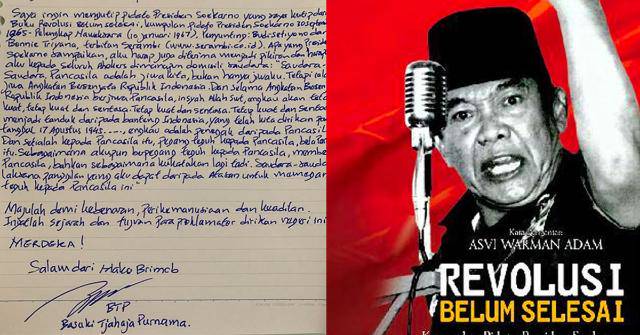 Saya ingin mengutip pidato Presiden Soekarno yang saya kutip dari
Buku Revolusi Belum selesai, kumpulan pidato Presiden Soekarno 30 September
1965 - Pelengkap Nawaksara (10 Januari 1967). Penyunting: Budi Setiyono dan
Bonnie Triyana, terbitan Serambi (www.serambi.co.id). Apa yang Presiden
Soekarno sampaikan, aku harap juga diterima menjadi pikiran dan harapan
aku kepada seluruh Ahokers dimanapun domisili saudara: "Saudara-
Saudara, Pancasila adalah jiwa kita, bukan hanya jiwaku. Tetapi ialah
jiwa Angkatan Bersenjata Republik Indonesia. Dan selama Angkatan Bersen
Republik Indonesia berjiwa Pancasila, insyah Allah swt, engkau akan tetap
kuat, tetap kuat dan sentosa. Tetap kuat dan sentosa
menjadi tanduk daripada banteng Indonesia, yang telah kita dirikan pada
tanggal 17 Agustus 1945....., engkau adalah penegak daripada Pancasila
Dan setialah kepada Pancasila itu, pegang teguh kepada Pancasila, bela
itu. Sebagaimana akupun berpegang teguh kepada Pancasila, membela
Pancasila, bahkan sebagaimana kukatakan lagi tadi. Saudara-saudara
laksana panggilan yang aku dapat daripada Atasan untuk memegang
teguh kepada Pancasila ini"
Majulah demi kebenaran, Perikemanusiaan dan keadilan.
Ingatlah sejarah dan tujuan para proklamator dirikan negeri ini
MERDEKA!
Salam dari Mako Brimob
BTP
Basuki Tjahaja Purnama.
Kata Pengantar:
ASVI WARMAN ADAM
REVOLUSI
BELUM SELESAI